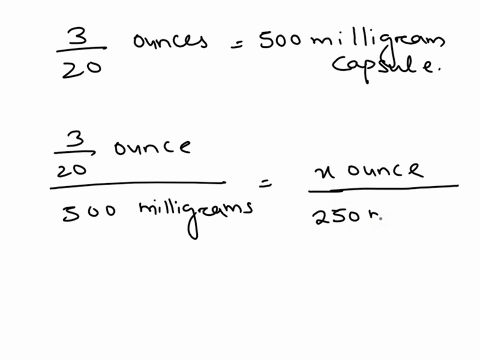 3/20 ounces = 500 milligram
capsule.
3/20 ounce / 500 milligrams = x ounce / 250 m